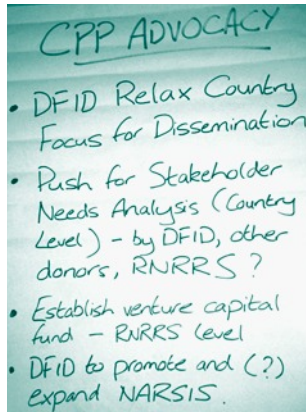 CPP ADVOCACY
• DFID Relax Country
Focus for Dissemination
• Push for Stakeholder
Needs Analysis (Country
Level) - by DFID, other
donors, RNRRS ?
• Establish venture capital
fund - RNRRS level
• DFID to promote and (?)
expand NARSIS.